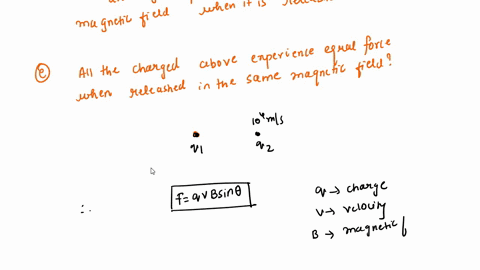 magnetic field when it is
ⓔ All the charged above experience equal force
when released in the same magnetic field?
10⁴m/s
q1 q2
∴ F=qvBsinθ
q → charge
V → velocity
B → magnetic f